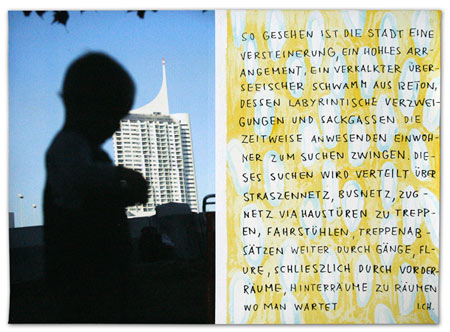 SO GESEHEN IST DIE STADT EINE
VERSTEINERUNG EIN HOHLES ARR-
ANGEMENT, EIN VERKALKTER ÜBER-
SEEISCHER SCHWAMM AUS BETON,
DESSEN LABYRINTISCHE VERZWEI-
GUNGEN UND SACKGASSEN DIE
ZEITWEISE ANWESENDEN EINWOH-
NER ZUM SUCHEN ZWINGEN. DIE-
SES SUCHEN WIRD VERTEILT ÜBER
STRASZENNETZ, BUSNETZ, ZUG-
NETZ VIA HAUSTÜREN ZU TREPP-
EN, FAHRSTÜHLEN, TREPPENAB-
SÄTZEN WEITER DURCH GÄNGE, FL-
URE, SCHLIESZLICH DURCH VORDER-
RÄUME, HINTERRÄUME ZU RÄUMEN
WO MAN WARTET I.CH.